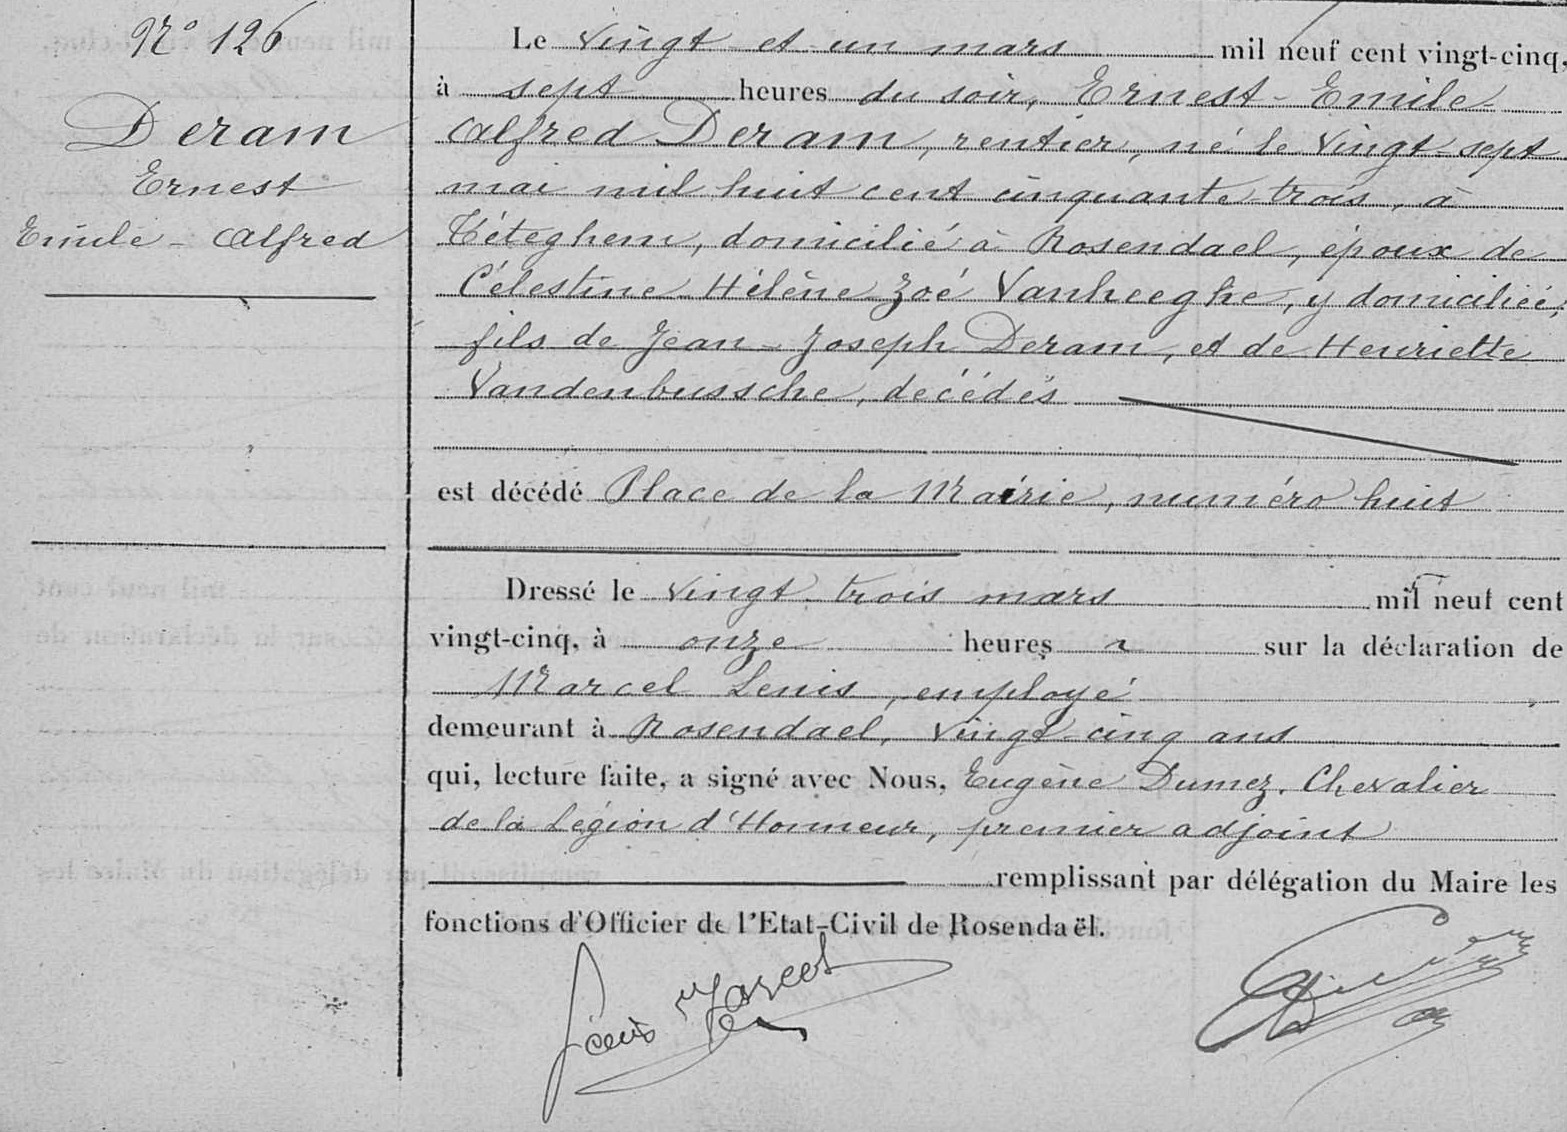 N° 126
Deram
Ernest
Emile - Alfred
Le vingt et un mars mil neuf cent vingt-cinq,
à sept heures du soir, Ernest - Emile
Alfred Deram, rentier, né le vingt sept
mai mil huit cent cinquante trois, à
Téteghem, domicilié à Rosendael, époux de
Célestine Hélène Zoé Vanheeghe, y domiciliée,
fils de Jean - Joseph Deram, et de Henriette
Vandenbussche, décédés
est décédé Place de la Mairie, numéro huit
Dressé le vingt trois mars mil neuf cent
vingt-cinq, à onze heures sur la déclaration de
Marcel Lenis, employé
demeurant à Rosendael, vingt-cinq ans
qui, lecture faite, a signé avec Nous, Eugène Dumez, Chevalier
de la Légion d'Honneur, premier adjoint
remplissant par délégation du Maire les
fonctions d'Officier de l'Etat-Civil de Rosendaël.
Marcel